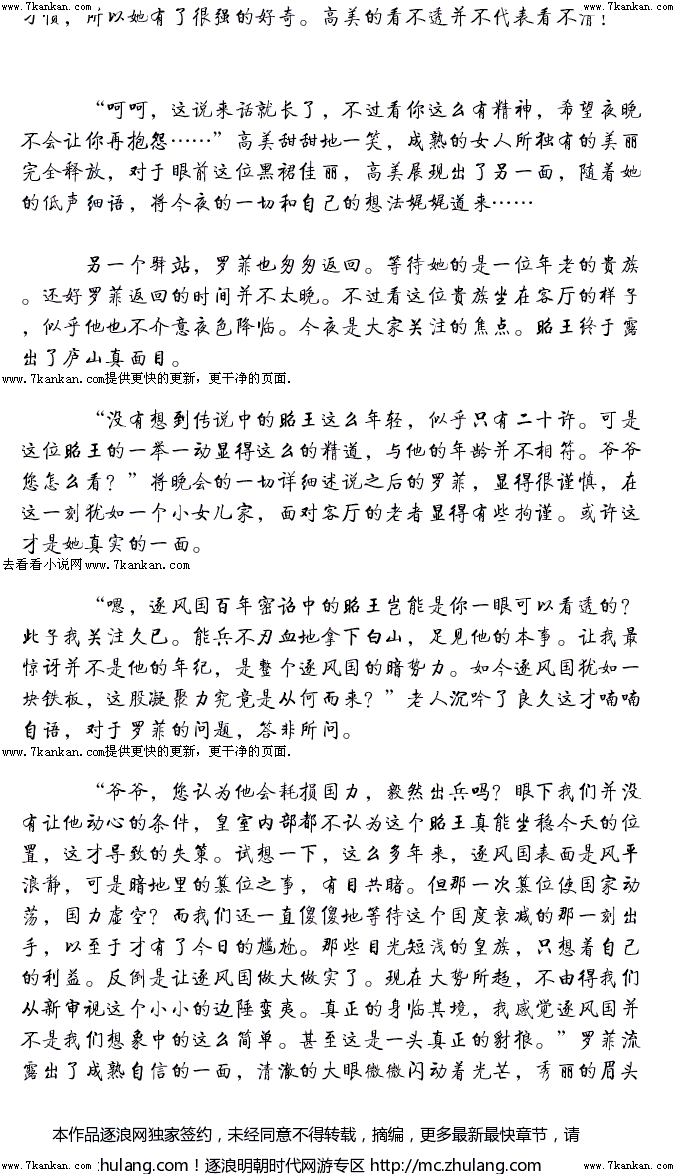 www.7kankan.com www.7kankan.com www.7kankan.com
习惯，所以她有了很强的好奇。高美的看不透并不代表看不清！
“呵呵，这说来话就长了，不过看你这么有精神，希望夜晚
不会让你再抱怨……”高美甜甜地一笑，成熟的女人所独有的美丽
完全释放，对于眼前这位黑裙佳丽，高美展现出了另一面，随着她
的低声细语，将今夜的一切和自己的想法娓娓道来……
另一个驿站，罗菲也匆匆返回。等待她的是一位年老的贵族
。还好罗菲返回的时间并不太晚。不过看这位贵族坐在客厅的样子
，似乎他也不介意夜色降临。今夜是大家关注的焦点。昭王终于露
出了庐山真面目。
www.7kankan.com提供更快的更新，更干净的页面.
“没有想到传说中的昭王这么年轻，似乎只有二十许。可是
这位昭王的一举一动显得这么的精道，与他的年龄并不相符。爷爷
您怎么看？”将晚会的一切详细述说之后的罗菲，显得很谨慎，在
这一刻犹如一个小女儿家，面对客厅的老者显得有些拘谨。或许这
才是她真实的一面。
去看看小说网www.7kankan.com
“嗯，逐风国百年密话中的昭王岂能是你一眼可以看透的？
此子我关注久已。能兵不刃血地拿下白山，足见他的本事。让我最
惊讶并不是他的年纪，是整个逐风国的暗势力。如今逐风国犹如一
块铁板，这股凝聚力究竟是从何而来？”老人沉吟了良久这才喃喃
自语，对于罗菲的问题，答非所问。
www.7kankan.com提供更快的更新，更干净的页面.
“爷爷，您认为他会耗损国力，毅然出兵吗？眼下我们并没
有让他动心的条件，皇室内部都不认为这个昭王真能坐稳今天的位
置，这才导致的失策。试想一下，这么多年来，逐风国表面是风平
浪静，可是暗地里的篡位之事，有目共睹。但那一次篡位使国家动
荡，国力虚空？而我们还一直傻傻地等待这个国度衰减的那一刻出
手，以至于才有了今日的尴尬。那些目光短浅的皇族，只想着自己
的利益。反倒是让逐风国做大做实了。现在大势所趋，不由得我们
从新审视这个小小的边陲蛮夷。真正的身临其境，我感觉逐风国并
不是我们想象中的这么简单。甚至这是一头真正的豺狼。”罗菲流
露出了成熟自信的一面，清澈的大眼微微闪动着光芒，秀丽的眉头
本作品逐浪网独家签约，未经同意不得转载，摘编，更多最新最快章节，请
www.7kankan.com zhulang.com！逐浪明朝时代网游专区 http://mc.zhulang.com www.7kankan.com